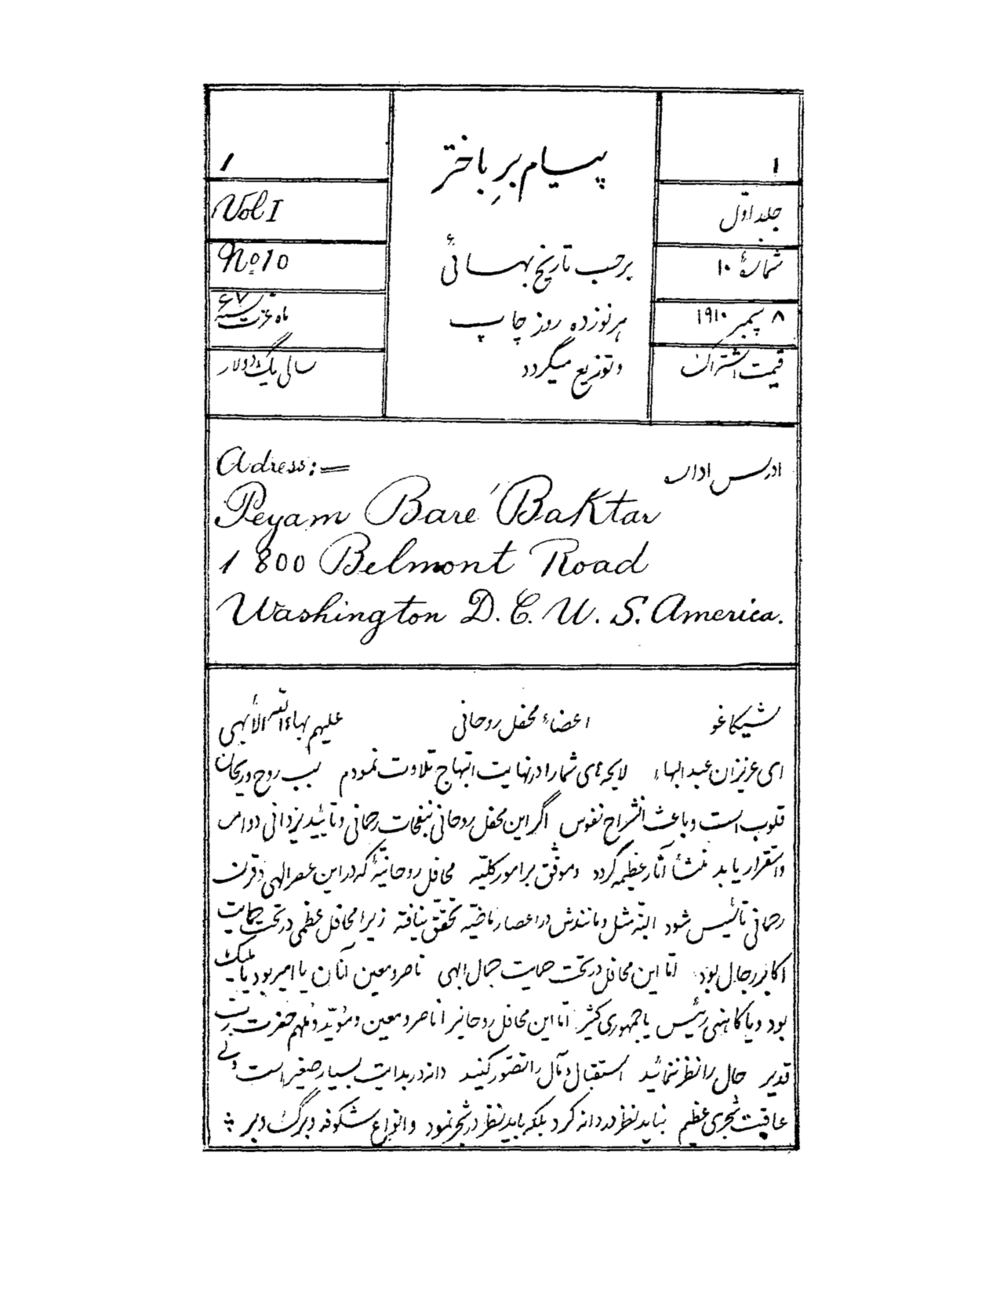 ۱
پیام بر باختر
1
جلد اوّل
Vol I
شمارهٔ ۱۰
برحسب تاریخ بهائی
No 10
۸ سپتمبر ۱۹۱۰
هر نوزده روز چاپ
ماه عزّت سنه ۶۷
قیمت اشتراک
و توزیع میگردد
سالی یک دولار
ادرس اداره
Adress:=
Peyam Bare' Baktar
1800 Belmont Road
Washington D.C. U.S. America.
شیکاغو اعضاء محفل روحانی علیهم بهاءالله الأبهی
ای عزیزان عبدالبهاء لایحه‌های شما را در نهایت ابتهاج تلاوت نمودم سبب روح و ریحان
قلوب است و باعث انشراح نفوس اگر این محفل روحانی بنفحات رحمانی و تأیید یزدانی دوام
و استقرار یابد منشأ آثار عظیمه گردد و موفّق بر امور کلیّه محافل روحانیّهٔ که در این عصر الهی و قرن
رحمانی تأسیس شود البتّه مثل و مانندش در اعصار ماضیه تحقّق نیافته زیرا محافل عظمی در تحت حمایت
اکابر رجال بود امّا این محافل در تحت حمایت جمال الهی ناصر و معین آنان یا امیر بود یا ملک
بود و یا کاهنی رئیس یا جمهوری کثیر امّا این محافل روحانیرا ناصر و معین و مؤیّد و ملهم حضرت ربّ
قدیر حال را نظر ننمائید استقبال و مآل را تصوّر کنید دانه در بدایت بسیار صغیر است ولی
عاقبت شجری عظیم نباید نظر در دانه کرد بلکه باید نظر در شجر نمود و انواع شکوفه و برگ و بر